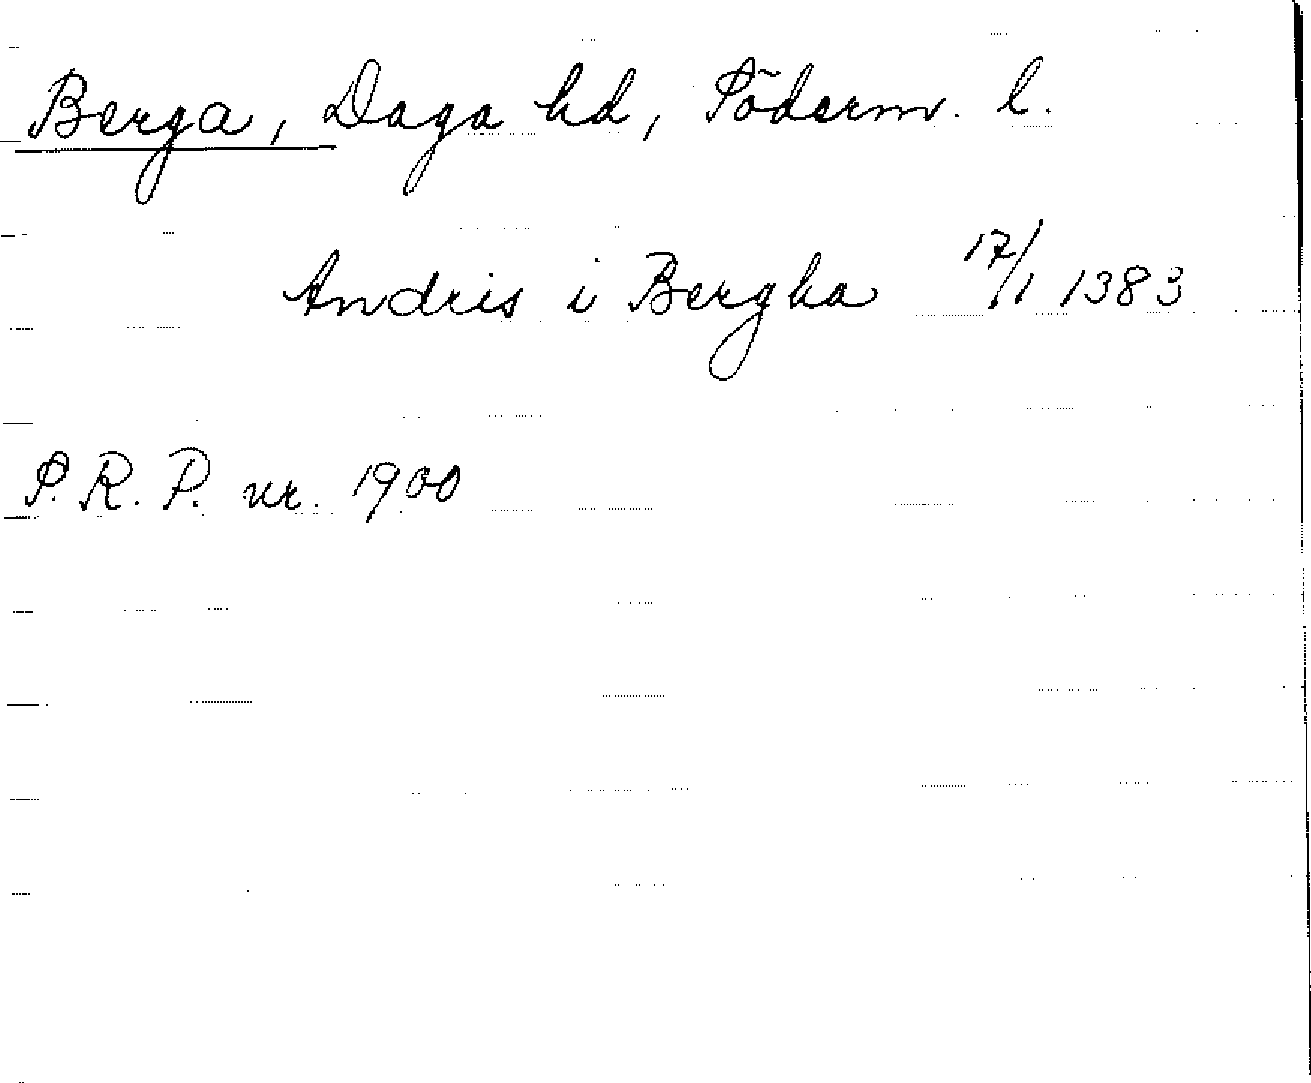 Berga, Daga hd, Söderm. l.
Andris i Bergha 17/1 1383
S. R. P. nr. 1900